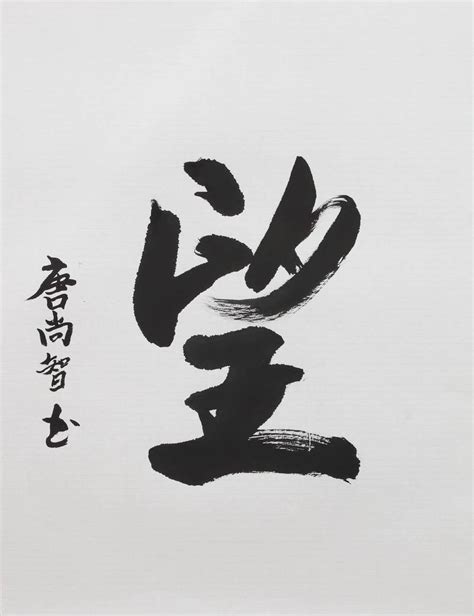 望
唐尚智书